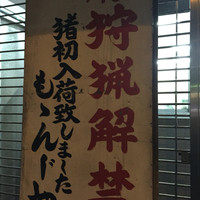 狩猟解禁
猪初入荷致しました
もゝんじ